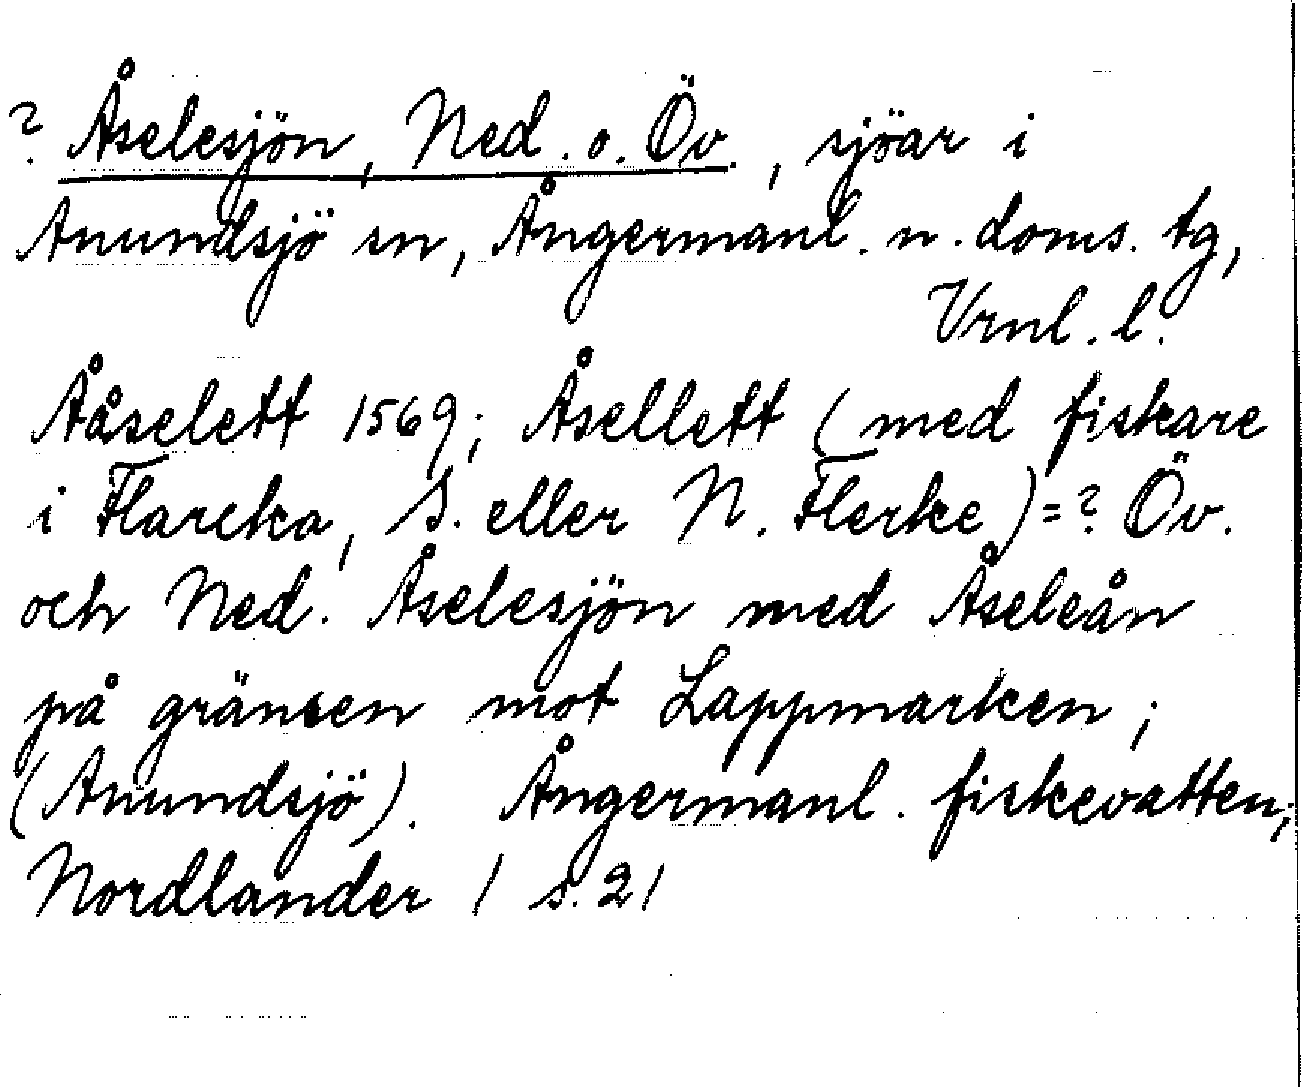 ? Åselesjön, Ned. o. Öv., sjöar i
Anundsjö sn, Ångermanl. n. doms. tg,
Vrnl. l.
Ååselett 1569; Åsellett (med fiskare
i Flarcka, S. eller N. Flerke) =? Öv.
och Ned. Åselesjön med Åseleån
på gränsen mot Lappmarken;
(Anundsjö). Ångermanl. fiskevatten;
Nordlander 1 s. 21